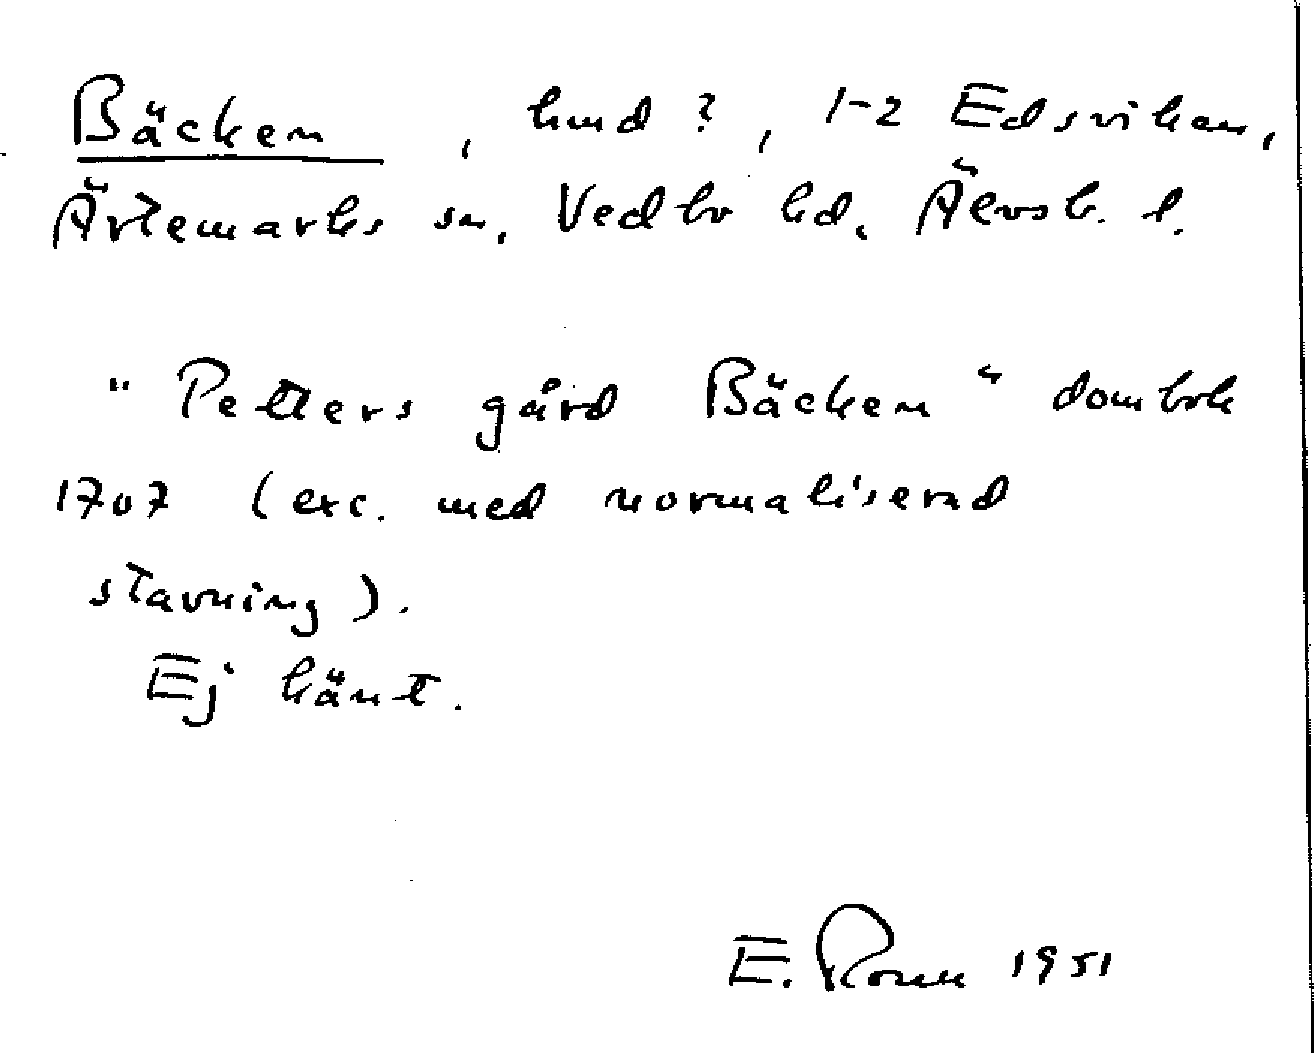 Bäcken, hmd ?, 1-2 Edsviken,
Ärtemarks sn, Vedbo hd, Älvsb. l.
"Petters gård Bäcken" dombok
1707 (exc. med normaliserad
stavning).
Ej känt.
E. Rosell 1951